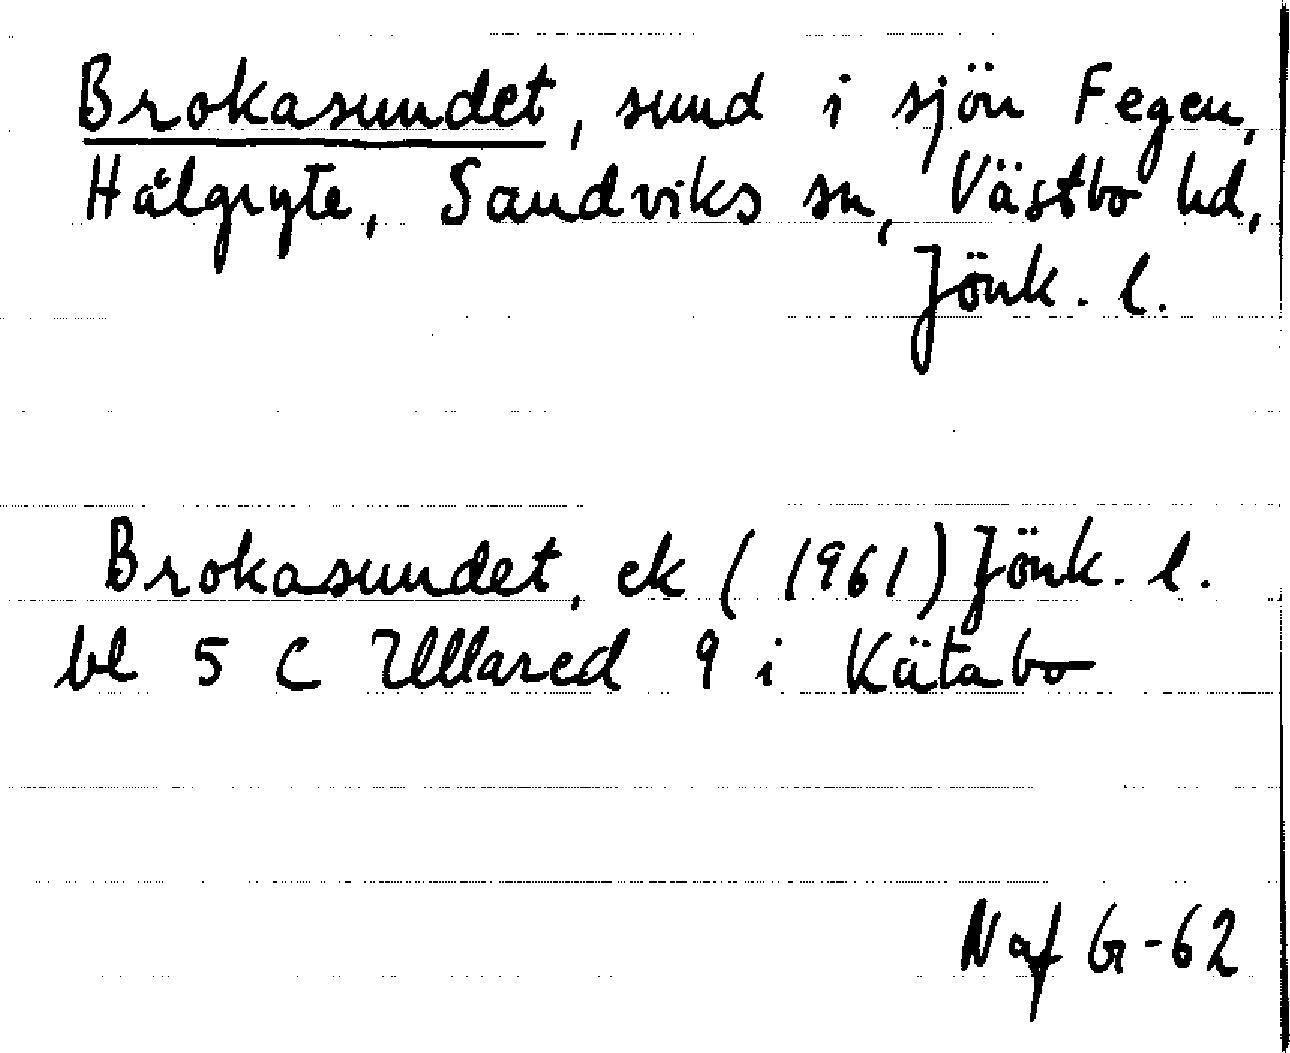 Brokasundet, sund i sjön Fegen,
Hålgryte, Sandviks sn, Västbo hd,
Jönk. l.
Brokasundet, ek (1961) Jönk. l.
bl 5 C Ullared 9 i Kätabo
Naf G-62